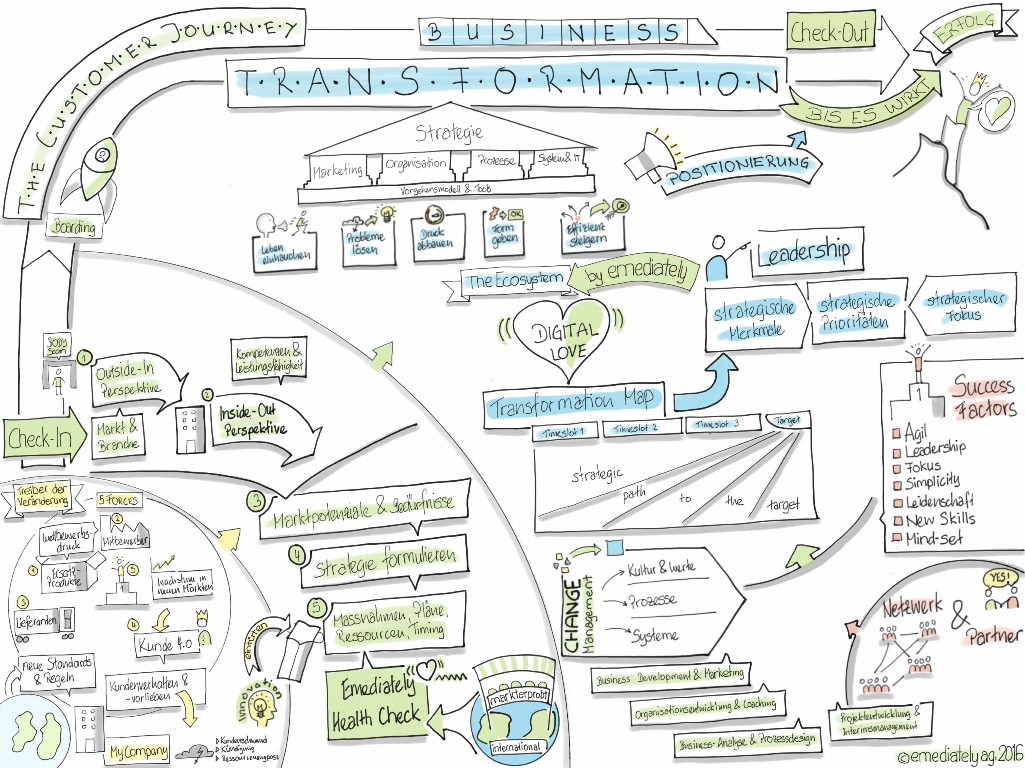 THE CUSTOMER JOURNEY
BUSINESS
TRANSFORMATION
Check-Out
ERFOLG
BIS ES WIRKT
Boarding
Strategie
Marketing
Organisation
Prozesse
System & IT
Vorgehensmodell & Tools
POSITIONIERUNG
Leben
einhauchen
Probleme
lösen
Druck
abbauen
OK
Form
geben
Effizienz
steigern
The Ecosystem
by emediately
Leadership
DIGITAL
LOVE
strategische
Merkmale
strategische
Prioritäten
strategischer
Fokus
BODY
Scan
1
Outside-In
Perspektive
Kompetenzen &
Leistungsfähigkeit
Check-In
Markt &
Branche
2
Inside-Out
Perspektive
Transformation Map
Timeslot 1
Timeslot 2
Timeslot 3
Target
strategic
path
to
the
target
1
Success
Factors
Agil
Leadership
Fokus
Simplicity
Leidenschaft
New Skills
Mind-set
Treiber der
Veränderung
5-FORCES
Wettbewerbs-
druck
2
Mitbewerber
Ersatz-
Produkte
5
Wachstum in
neuen Märkten
3
Lieferanten
4
Kunde 4.0
neue Standards
& Regeln
Kundenverhalten &
-vorlieben
MyCompany
Kundenschwund
Kündigung
einhüten
Innovation
3
Marktpotenziale & Bedürfnisse
4
Strategie formulieren
5
Massnahmen, Pläne,
Ressourcen, Timing
Emediately
Health Check
markterprobt
international
CHANGE
Management
Kultur & Werte
Prozesse
Systeme
Business Development & Marketing
Organisationsentwicklung & Coaching
Business-Analyse & Prozessdesign
YES!
Netzwerk
&
Partner
Projektentwicklung &
Interimsmanagement
©emediately ag. 2016